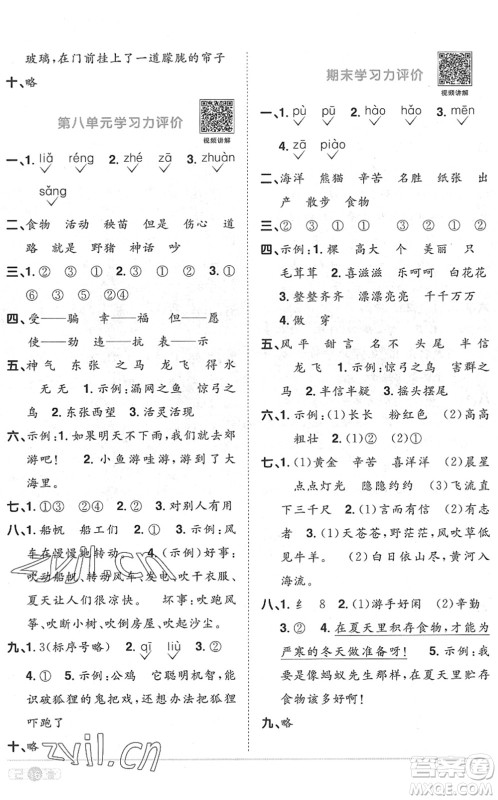 玻璃，在门前挂上了一道朦胧的帘子
十、略
第八单元学习力评价
视频讲解
一、1.liǎ réng 2.zhé zā 3.zhuàn
sǎng
二、食物 活动 秧苗 但是 伤心 道
路 就是 野猪 神话 吵
三、1.② ③ ① 2.③ ② ① 3.① ①
⑥ ③ ②④
四、受——骗 幸——福 干——旱
使——劲 愚——蠢
五、神 气 东 张 之 马 龙 得 水
无 无 1.示例：漏网之鱼 惊弓之
鸟 2.东张西望 3.活灵活现
六、示例：1.如果明天不下雨，我们就去郊
游吧！ 2.小鱼游哇游，游到了大
海里。
七、1.①③ ②④ 2.对别人有用
八、1.船帆 船工们 2.示例：风
车在慢慢地转动 3.示例：好事：
吹动船帆、转动风车、发电、吹干衣服、
夏天让人们感到凉爽。 坏事：吹跑风
筝、吹断小树、吹倒房屋、吹沉小船。
九、1.3(标序号略) 2.qī lǜ 3.③
① 4.示例：公鸡 它聪明机智，能
识破狐狸的鬼把戏，还想办法把狐狸
吓跑了
十、略
期末学习力评价
视频讲解
一、1.pù pū 2.hào hǎo 3.mēn
zā piào
二、海洋 熊猫 辛苦 名胜 纸张 出
产 散步 食物
三、② ③ ① ② ① ③ ① ②
四、示例：1.棵 高大 个 美丽 只
毛茸茸 2.喜滋滋 乐呵呵 白花花
3.整整齐齐 漂漂亮亮 千千万万
4.做 穿
五、风 平 甜 言 名 不 头 尾
半 信 1.示例：惊弓之鸟 龙马精
神 2.半信半疑 3.摇头摆尾
六、示例：(1)长长 粉红色 (2)高高
1.(1)② (2)①
七、1.(1)黄金 辛苦 喜洋洋 (2)晨星
点点灯光 隐隐约约 (3)飞流直
下三千尺 (4)言而有信 (5)有志者
2.(1)天苍苍，野茫茫，风吹草低见
牛羊。 (2)白日依山尽，黄河入
海流。
八、1.纟 8 2.(1)游手好闲 (2)辛勤
3.① 4.在夏天里积存食物，为
严寒的冬天做准备呀！ 5.示例：
我要是像蚂蚁先生那样，在夏天里贮存
食物该多好啊！
九、略